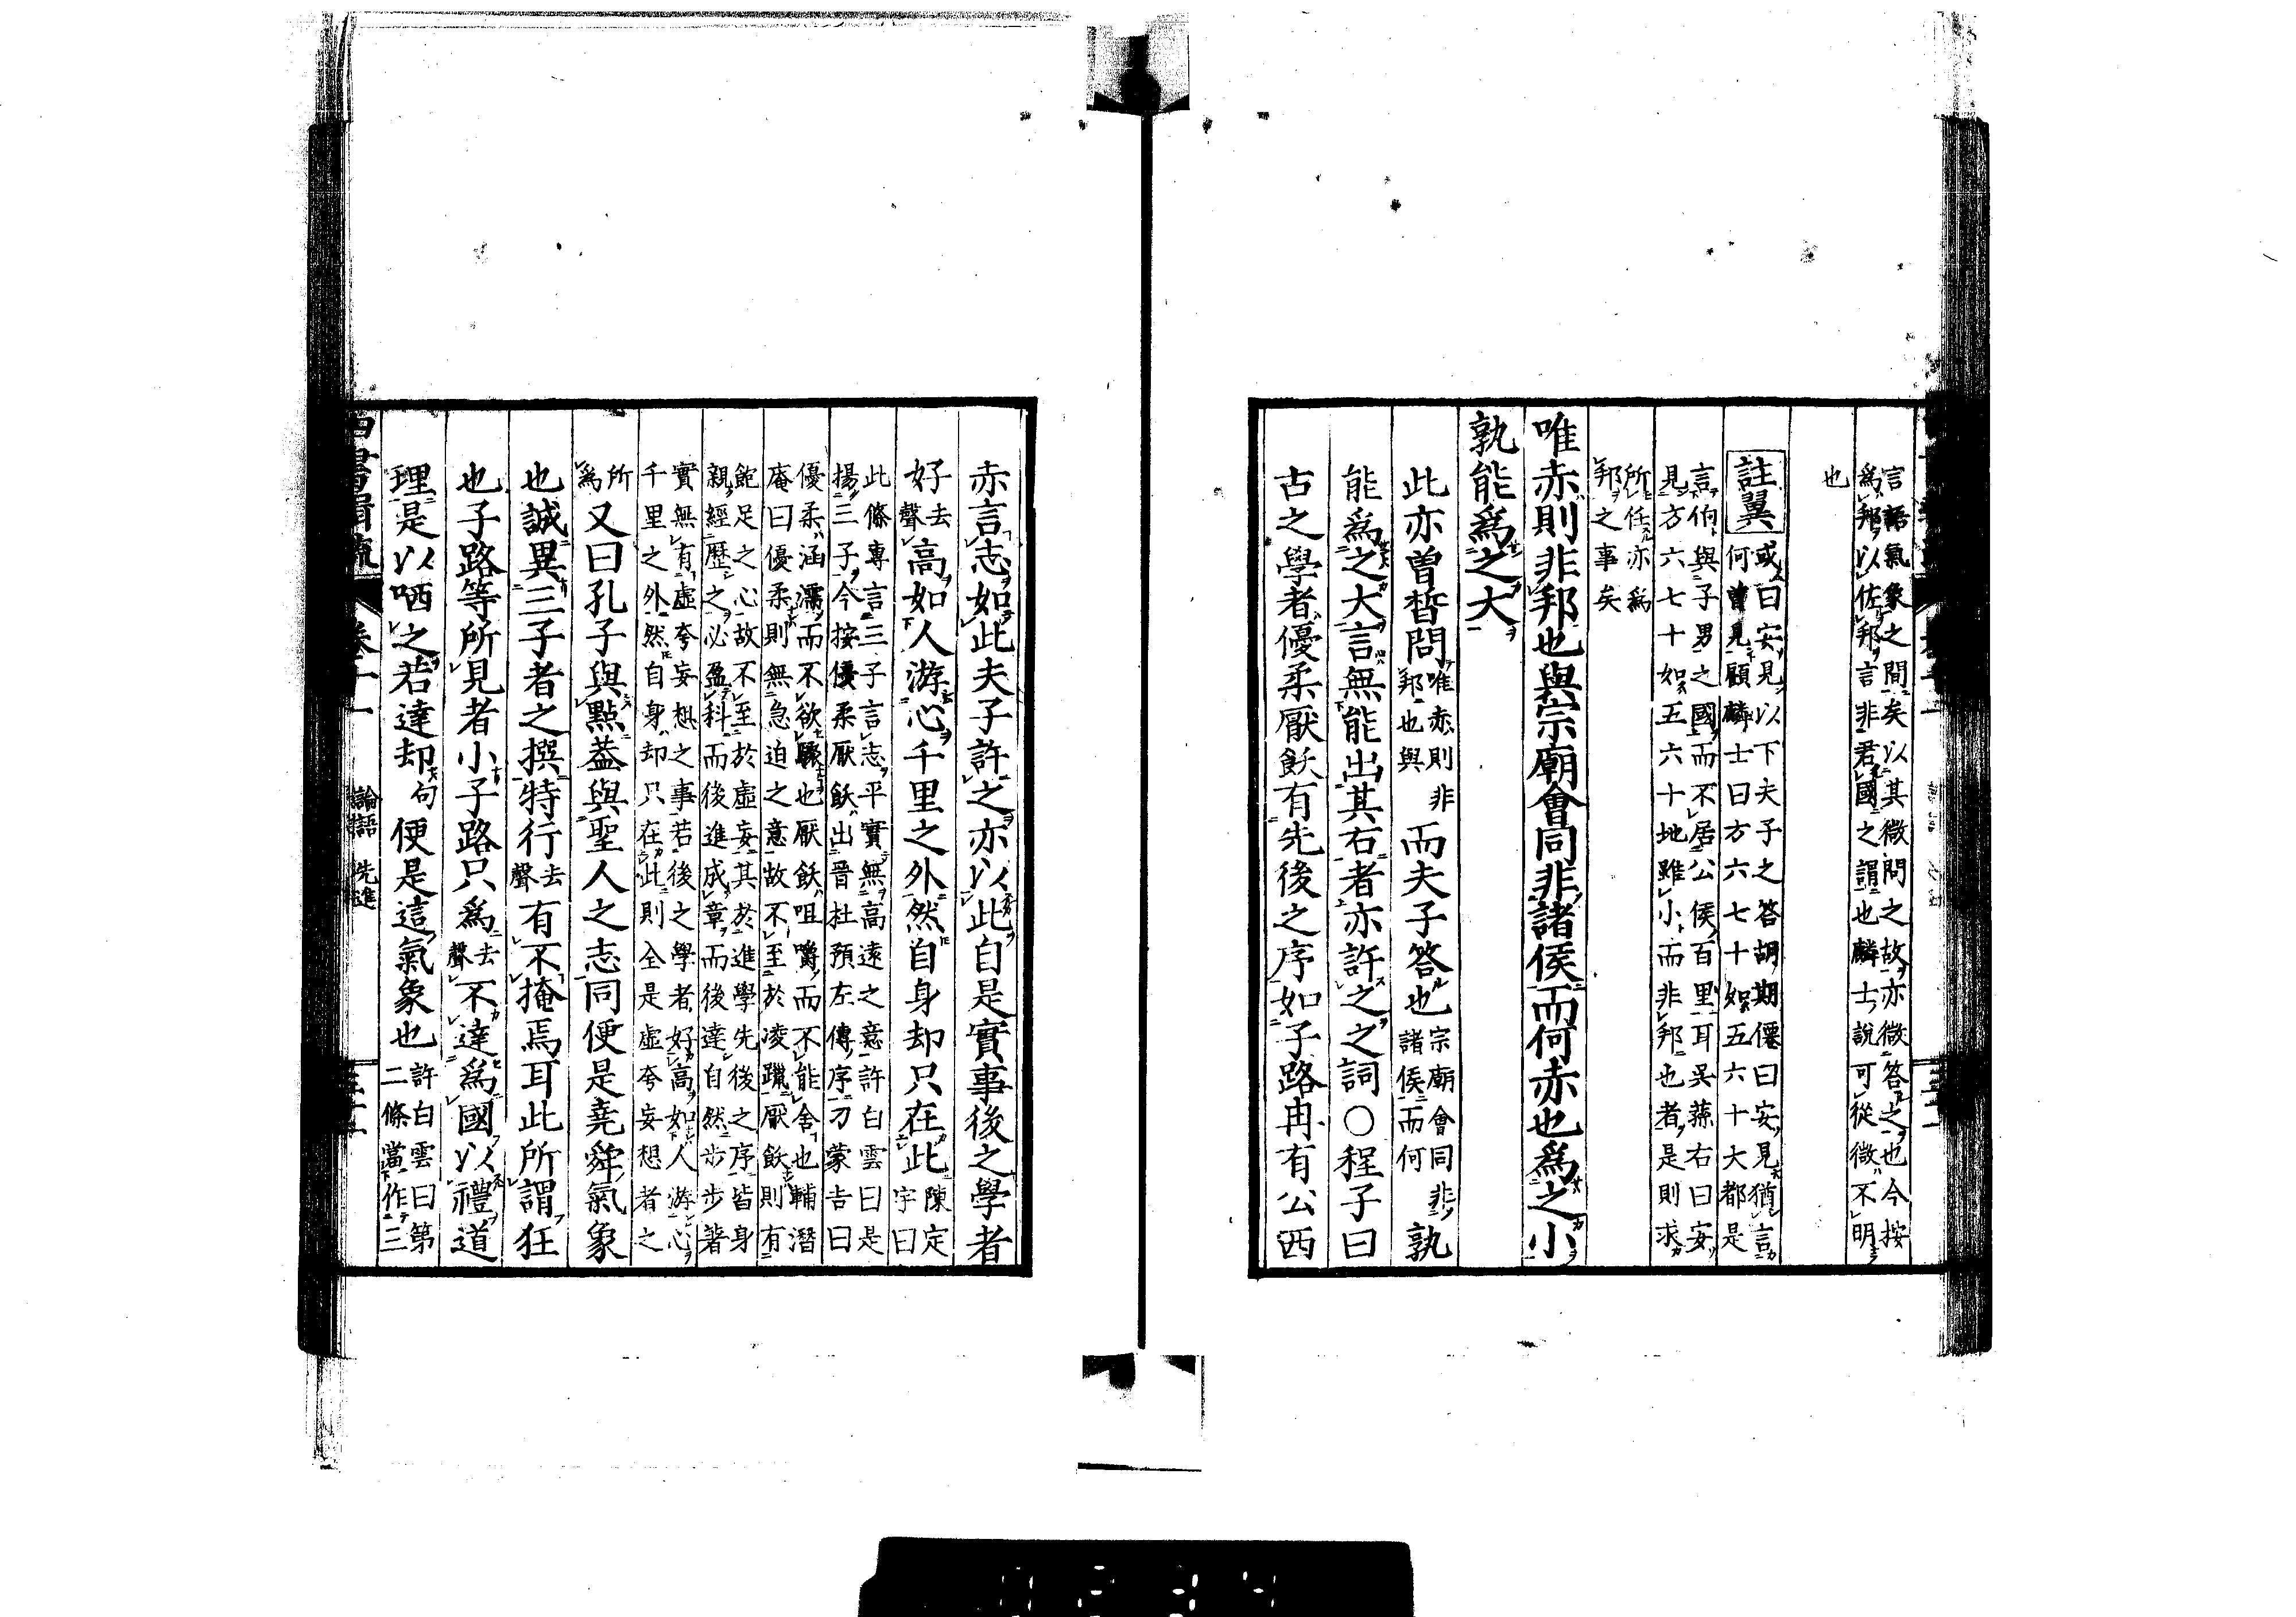 言語氣象之間矣以其微問之故亦微答之也今按
爲邦以佐邦言非君國之謂也麟士說可從微不明
也
註翼
或曰安見以下夫子之答胡期僊曰安見猶言
何曽見顧麟士曰方六七十如五六十大都是
言伯與子男之國而不居公侯百里耳吳蓀右曰安
見方六七十如五六十地雖小而非邦也者是則求
所任亦爲
邦之事矣
唯赤則非邦也與宗廟會同非諸侯而何赤也爲之小
孰能爲之大
此亦曽晳問
唯赤則非
邦也與
而夫子答也
宗廟會同非
諸侯而何
孰
能爲之大言無能出其右者亦許之之詞〇程子曰
古之學者優柔厭飫有先後之序如子路冉有公西
赤言志如此夫子許之亦以此自是實事後之學者
好
去
聲
高如人游心千里之外然自身却只在此
陳定
宇曰
此條專言三子言志平實無高遠之意許白雲曰是
揚三子今按優柔厭飫出晉杜預左傳序刁蒙吉曰
優柔涵濡而不欲驟也厭飫咀嚼而不能舍也輔潛
庵曰優柔則無急迫之意故不至於凌躐厭飫則有
飽足之心故不至於虛妄其於進學先後之序皆身
親經歷之必盈科而後進成章而後達自然步步著
實無有虛夸妄想之事若後之學者好高如人游心
千里之外然自身却只在此則全是虛夸妄想者之
所
爲
又曰孔子與點蓋與聖人之志同便是堯舜氣象
也誠異三子者之撰特行
去
聲
有不掩焉耳此所謂狂
也子路等所見者小子路只爲
去
聲
不達爲國以禮道
理是以哂之若達却
句
便是這氣象也
許白雲曰第
二條當作三
四書輯疏
卷十一
論語 先進
三十二